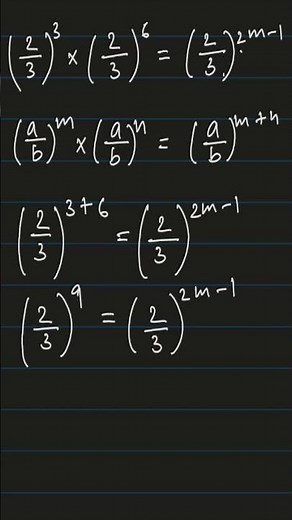 (2/3)^3 × (2/3)^6 = (2/3)^2m-1
(a/b)^m × (a/b)^n = (a/b)^m+n
(2/3)^3+6 = (2/3)^2m-1
(2/3)^9 = (2/3)^2m-1